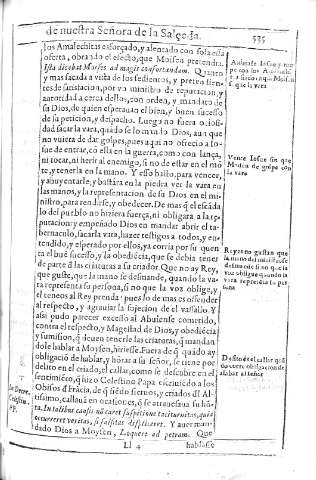 de nuestra Señora de la Salceda.
535
los Amalecitas esforçado, y alentado con sola esta
oferta, obrando el efecto, que Moisen pretendia.
Ista dicebat Moses ad magis confortandum. Quanto
y mas sacada a vista de los
de satisfacion, por vn ministro de reputacion, y
autoridad acerca dellos, con orden, y mandato de
su Dios, de quien esperauan el bien, y buen sucesso
de su peticion, y despacho. Luego no fuera
dad sacar la vara, quãdo se lo mando Dios, aun que
no vuiera de dar golpes, pues aqui no ofrecio a Io-
sue de entrar, cõ ella en la guerra, como con lança,
ni tocar, ni herir al enemigo, si no de estar en el mõ
te, y tenerla en la mano. Y esso basto, para vencer,
y ahuyentarle; y bastàra en la piedra ver la vara en
las manos, y la representacion de su Dios en el mi-
nistro, para rendirse, y obedecer. De mas que
lo del pueblo no hiziera fuerça, ni obligara a la re-
putacion; y empeñado Dios en mandar abrir el ta-
bernaculo, sacar la vara, hazer testigos a todos, y en-
tendido, y esperado por ellos, ya corria por su quen
ta el bué sucesso, y la obediécia, que se debia tener
de parte de las criaturas a su criador. Que no ay Rey,
que guste, que la mano se desmande, quando la va-
ra representa su persona, si no que la voz oblige, y
el respecto, y agrauiar la sojecion de el vassallo. Y
assi pudo parecer excesso al Abulense cometido,
contra el respecto, y Magestad de Dios, y obediécia
y sumision, que deuen tenerle las criaturas, que man
dole hablar a Moysen, hiriesse. Fuera de que quido ay
obligació de hablar, y hòrar a su señor, se tiene por
delito en el criado, el callar, como se descubre en el
sentimiéto, que hizo Celestino Papa
Obispos de Frácia, de que siédo sieruos, y criados del Al-
tissimo, callauã en ocasiones, que se atrauesaua su hõ-
ra. In talibus causis nõ caret suspitione taciturnitas, quia
occurreret veritas, si falsitas displiceret. Y auer man-
dado Dios a Moysen, Loquere ad petram. Que
Ll 4
hablasse
Vence Iosue sin que
Moisen de golpe con
la vara
Reyes no gustan que
la mano del ministro se
desmãde si no que la
voz oblige quando la
vara representa su per
sona
Delito es el callar quã
do corre obligacion de
alabar al señor
In Decret.
Celestin.
PP.